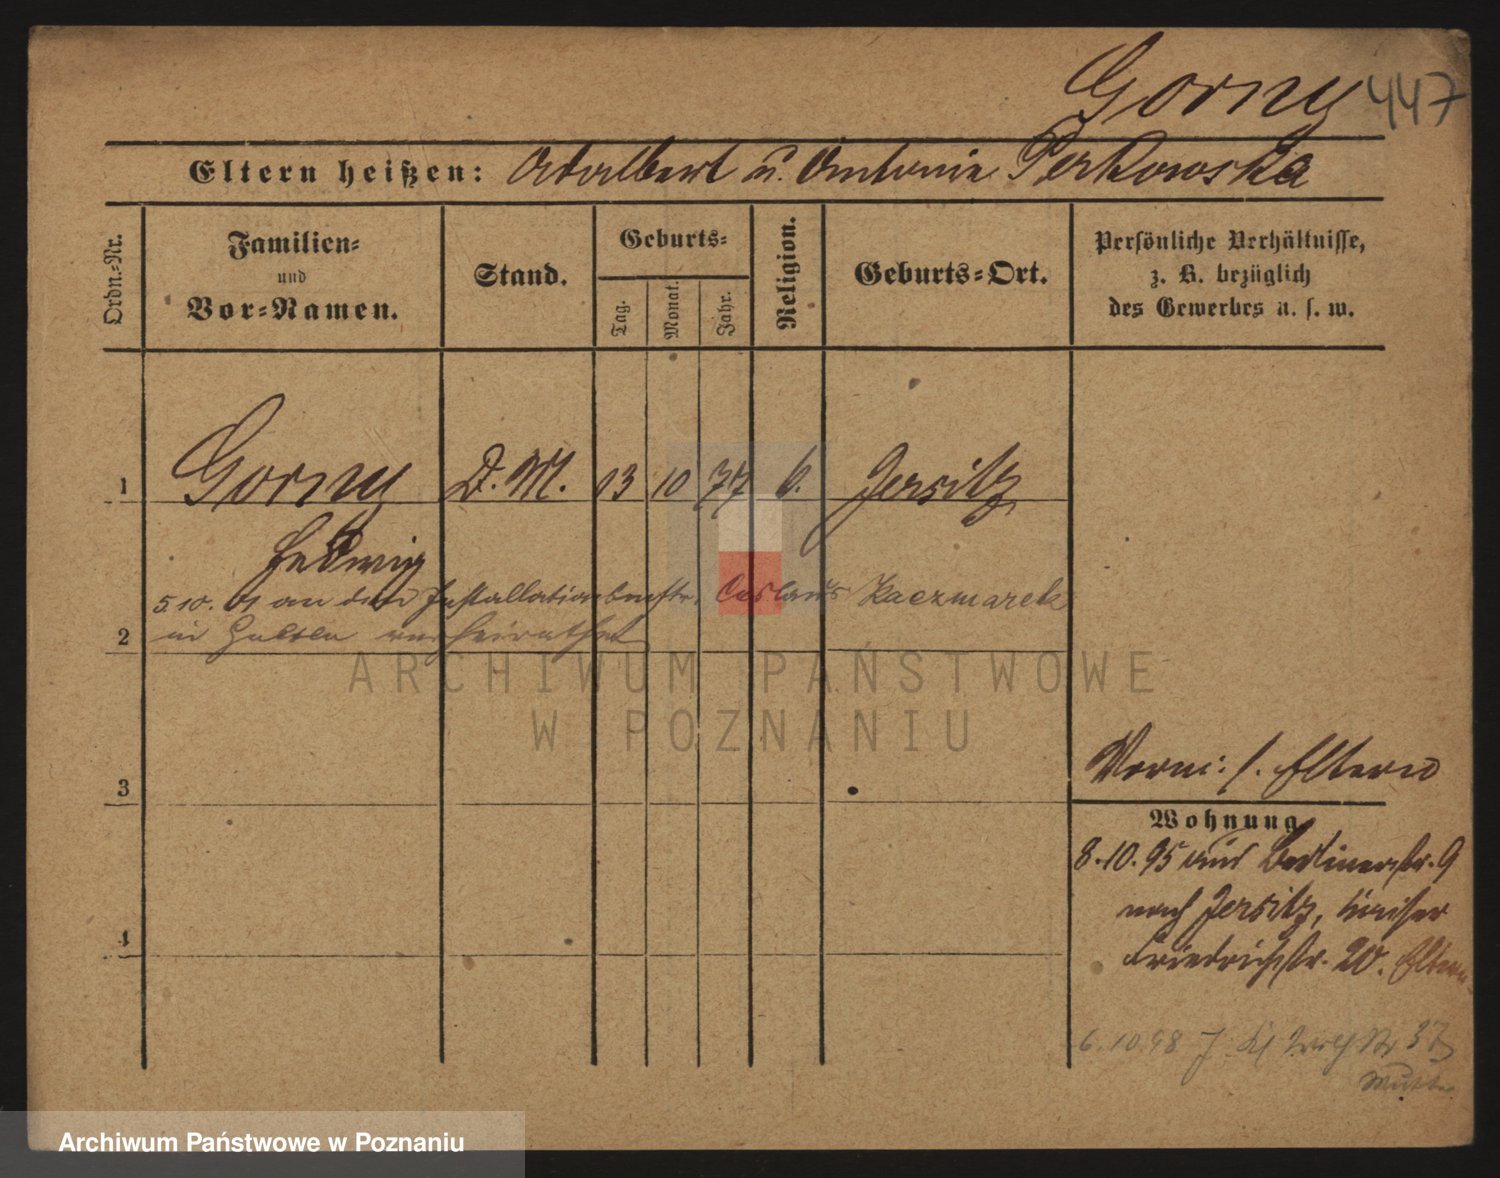 Gorny 447
Eltern heißen: Adalbert u. Antonie Perkowska
Ordn.-Nr.
Familien-
und
Vor-Namen.
Stand.
Geburts-
Tag.
Monat.
Jahr.
Religion.
Geburts-Ort.
Persönliche Verhältnisse,
z. B. bezüglich
des Gewerbes u. s. w.
1 Gorny D. M. 13 10 77 k. Jersitz
Hedwig
5.10.01 an den Kaczmarek
2 in verheirathet
3
Vorm: s. Eltern
Wohnung
8.10.95 aus Berlinerstr. 9
nach Jersitz, Kaiser
4
Friedrichstr. 20. Eltern
6.10.98 J. 37
Mutter
ARCHIWUM PAŃSTWOWE
W POZNANIU
Archiwum Państwowe w Poznaniu